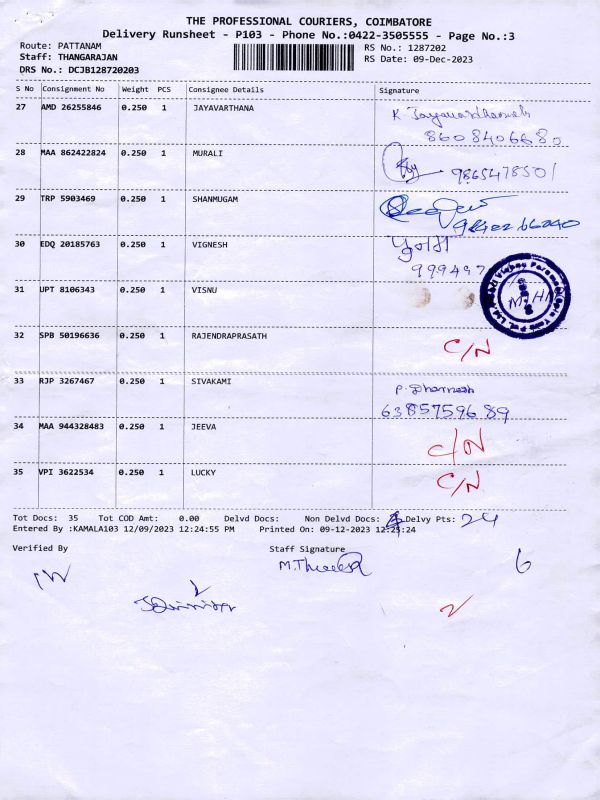 THE PROFESSIONAL COURIERS, COIMBATORE
Delivery Runsheet - P103 - Phone No.:0422-3505555 - Page No.:3
Route: PATTANAM RS No.: 1287202
Staff: THANGARAJAN RS Date: 09-Dec-2023
DRS No.: DCJB128720203
S No Consignment No Weight PCS Consignee Details Signature
27 AMD 26255846 0.250 1 JAYAVARTHANA K
8608406680
28 MAA 862422824 0.250 1 MURALI 9865478501
29 TRP 5903469 0.250 1 SHANMUGAM
30 EDQ 20185763 0.250 1 VIGNESH
999497
31 UPT 8106343 0.250 1 VISNU
32 SPB 50196636 0.250 1 RAJENDRAPRASATH C/N
33 RJP 3267467 0.250 1 SIVAKAMI P. Dharnesh
6385759689
34 MAA 944328483 0.250 1 JEEVA C/N
35 VPI 3622534 0.250 1 LUCKY C/N
Tot Docs: 35 Tot COD Amt: 0.00 Delvd Docs: Non Delvd Docs: Delvy Pts: 24
Entered By :KAMALA103 12/09/2023 12:24:55 PM Printed On: 09-12-2023 12:25:24
Verified By Staff Signature
6